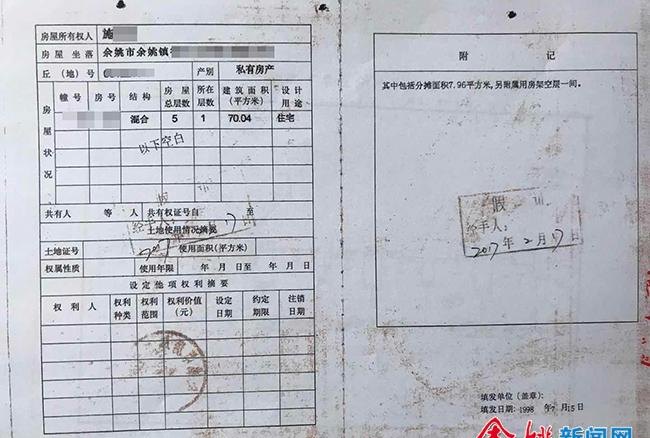 房屋所有权人 施
房屋坐落 余姚市余姚镇
丘（地）号 产别 私有房产
房屋状况
幢号 房号 结构 房屋总层数 所在层数 建筑面积（平方米） 设计用途
混合 5 1 70.04 住宅
以下空白
共有人 等 人 共有权证号自 至
土地使用情况摘要
土地证号 使用面积（平方米）
权属性质 使用年限 年 月 日至 年 月 日
设定他项权利摘要
权利人 权利种类 权利范围 权利价值（元） 设定日期 约定期限 注销日期
附 记
其中包括分摊面积7.96平方米，另附属用房架空层一间。
假
经手人：
2017年2月17日
填发单位（盖章）：
填发日期：1998 年7月15日
余姚新闻网